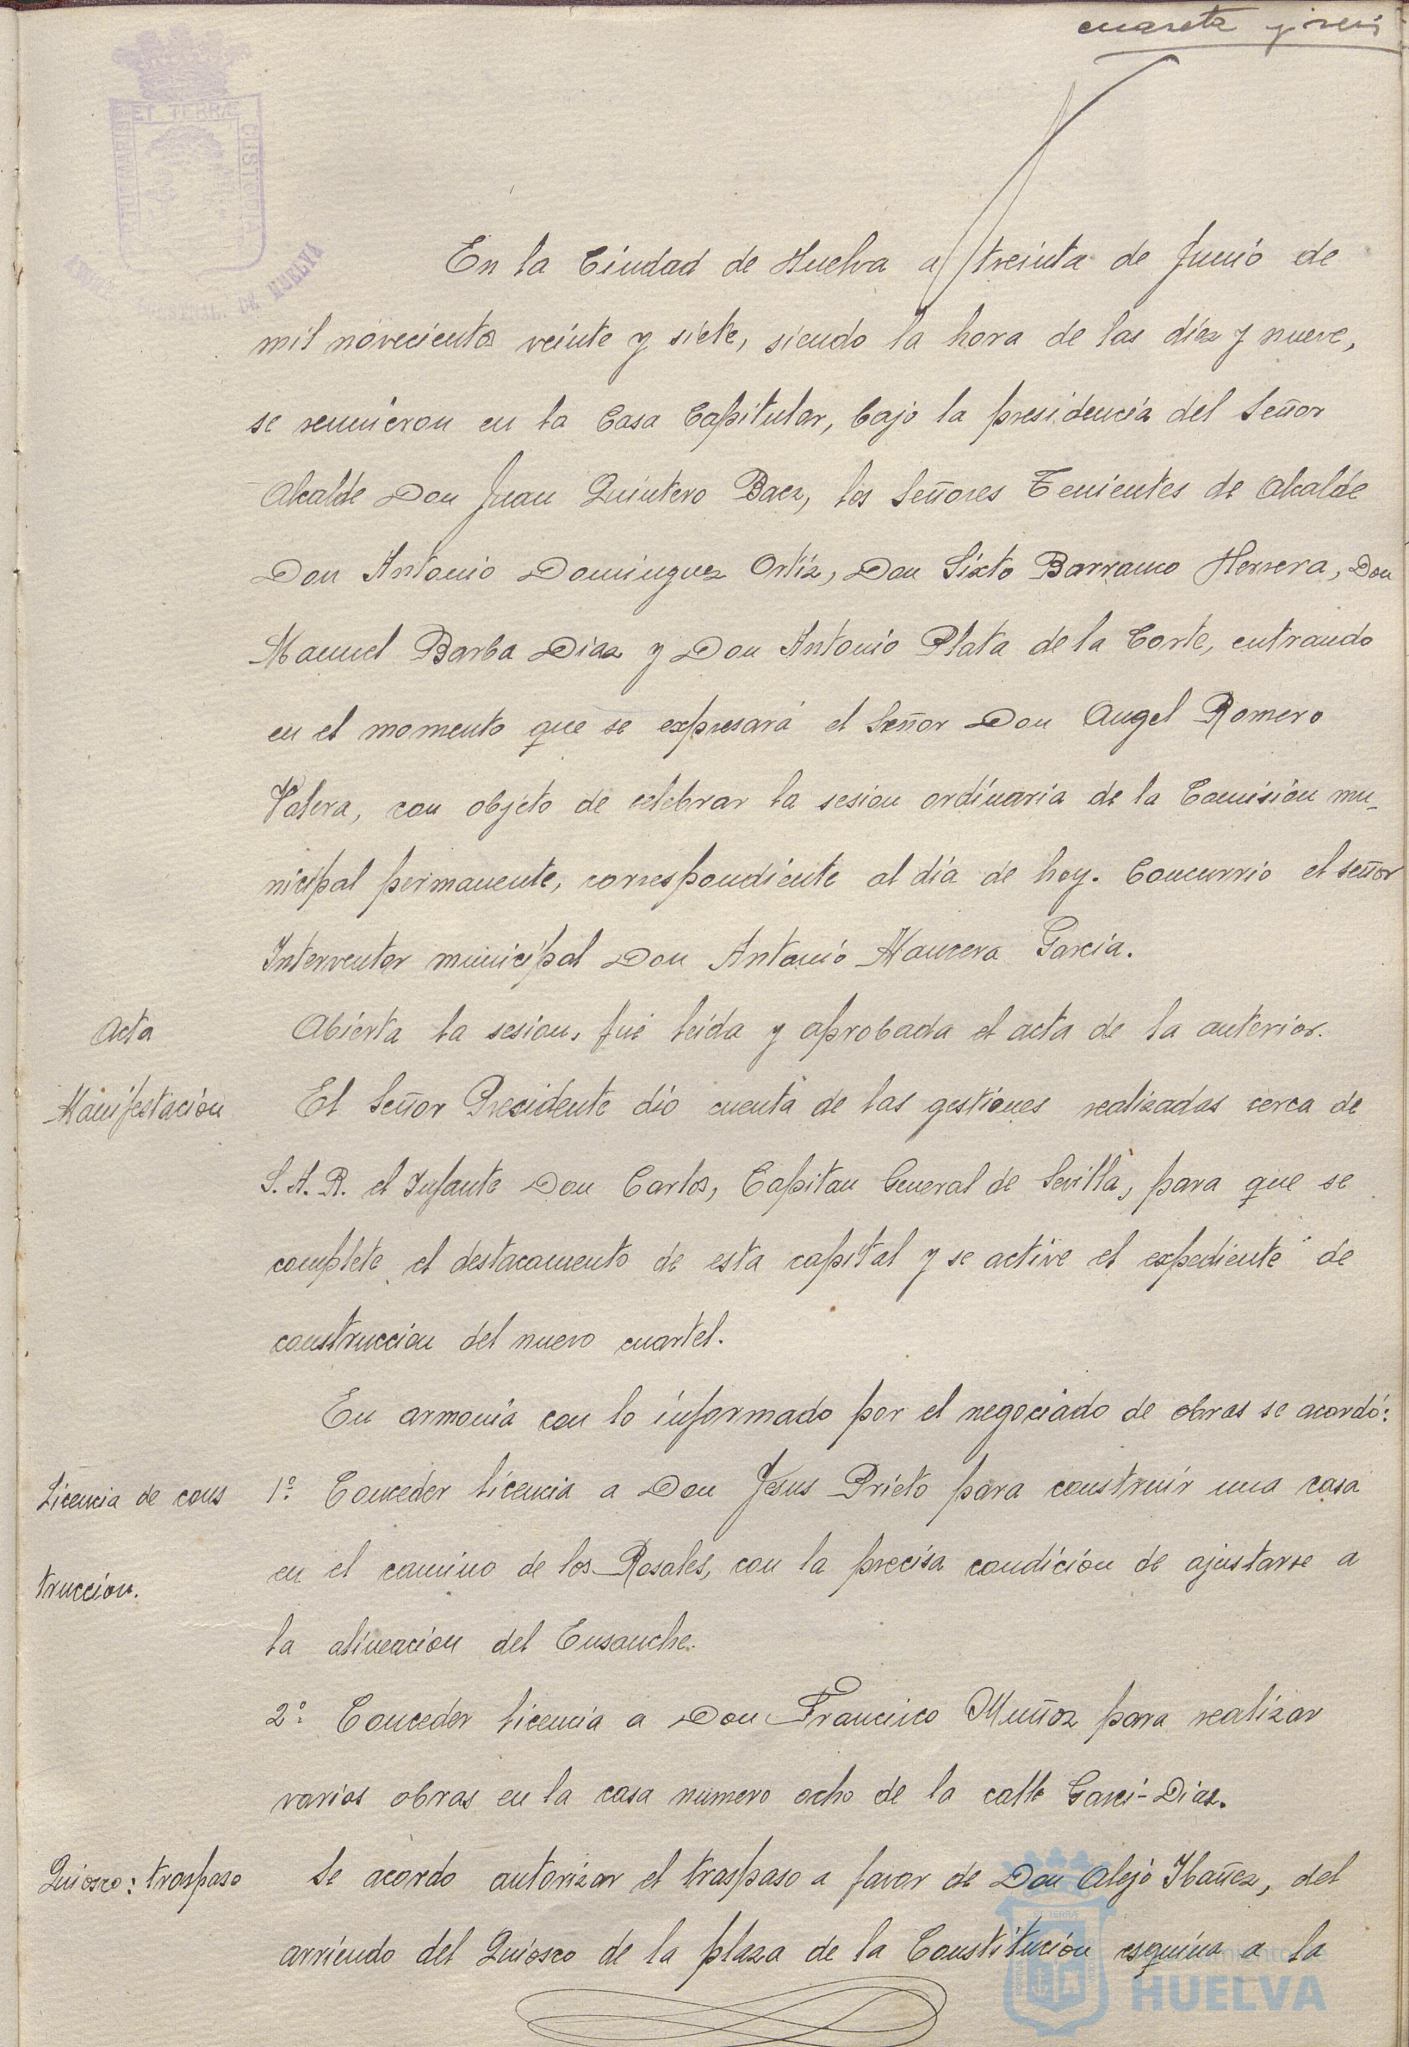 cuareta y seis
PORTUS MARIS ET TERRÆ CUSTODIA
HUELVA
En la Ciudad de Huelva a treinta de Junio de
mil novecientos veinte y siete, siendo la hora de las diez y nueve,
se reunieron en la Casa Capitular, bajo la presidencia del Señor
Alcalde Don Juan Quintero Baez, los Señores Tenientes de Alcalde
Don Antonio Dominguez Ortiz, Don Sixto Barranco Herrera, Don
Manuel Barba Diaz y Don Antonio Plata de la Corte, entrando
en el momento que se expresará el Señor Don Angel Romero
Valera, con objeto de celebrar la sesion ordinaria de la Comisión mu-
nicipal permanente, correspondiente al día de hoy. Concurrio el señor
Interventor municipal Don Antonio Mancera Garcia.
Acta Abierta la sesion, fué leida y aprobada el acta de la anterior.
Manifestación El Señor Presidente dió cuenta de las gestiones realizadas cerca de
S. A. R. el Infante Don Carlos, Capitan General de Sevilla, para que se
complete el destacamento de esta capital y se active el expediente de
construccion del nuevo cuartel.
En armonia con lo informado por el negociado de obras se acordó:
Licencia de cons 1º. Conceder licencia a Don Jesus Prieto para construir una casa
en el camino de los Rosales, con la precisa condición de ajustarse a
truccion.
la alineación del Ensanche.
2º. Conceder licencia a Don Francisco Muñoz para realizar
varias obras en la casa numero ocho de la calle Garci-Diaz.
Quiosco: traspaso Se acordo autorizar el traspaso a favor de Don Alejo Ibañez, del
arriendo del Quiosco de la plaza de la Constitución esquina a la
HUELVA